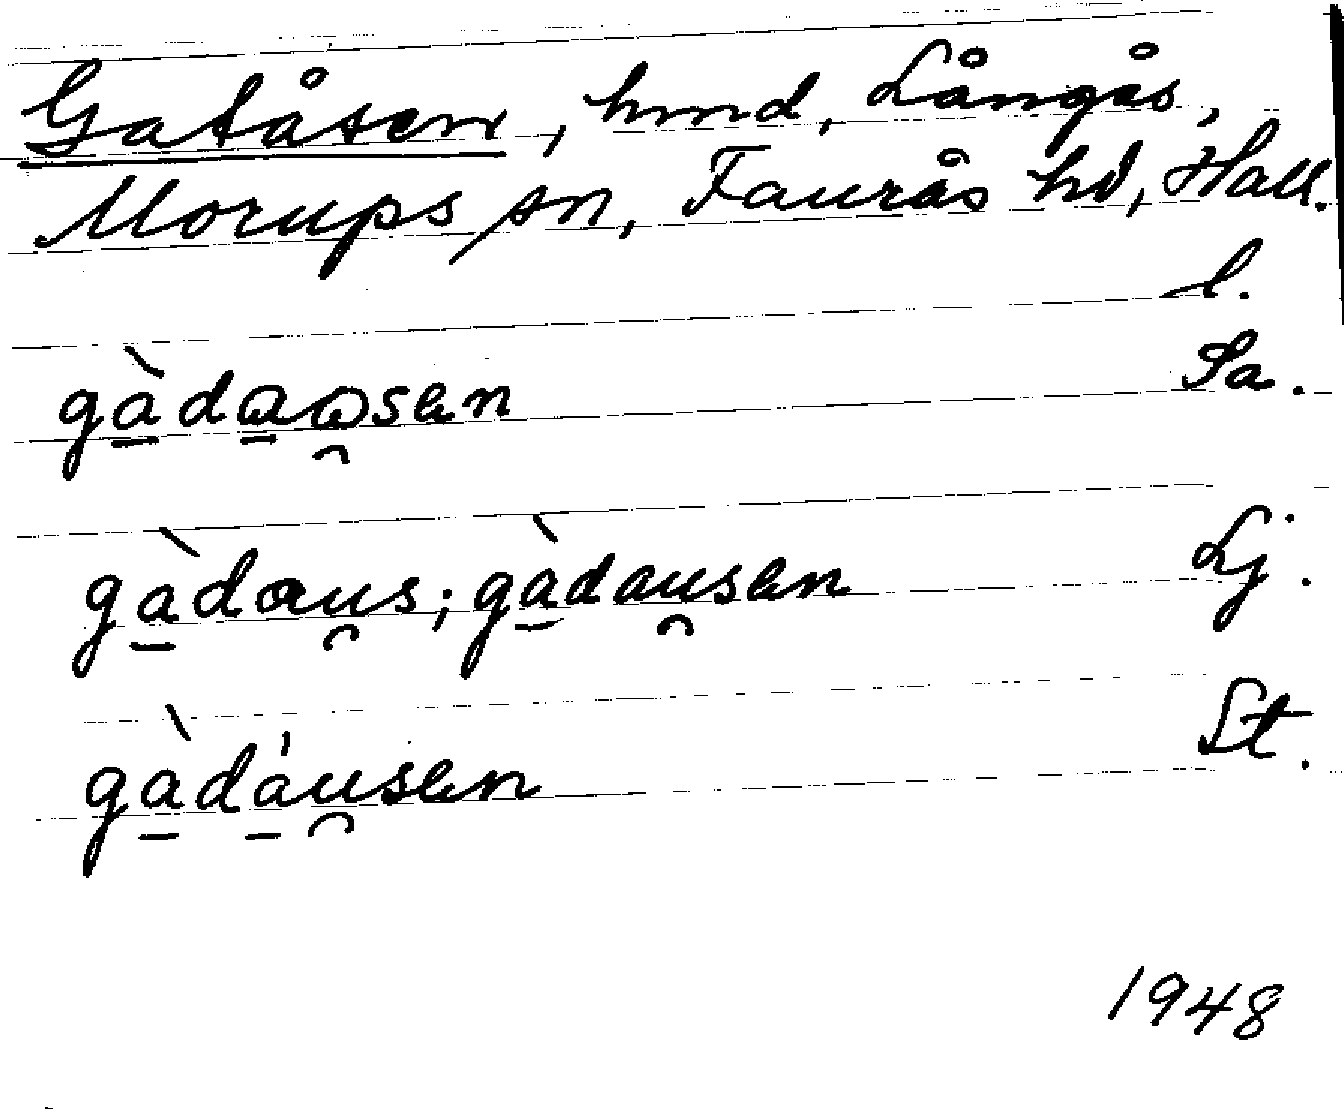 Gatåsen, hmd, Långås,
Morups sn, Faurås hd, Hall.
l.
gàdaosen Sa.
gàdaus; gàdausen Lj.
gàdáusen St.
1948